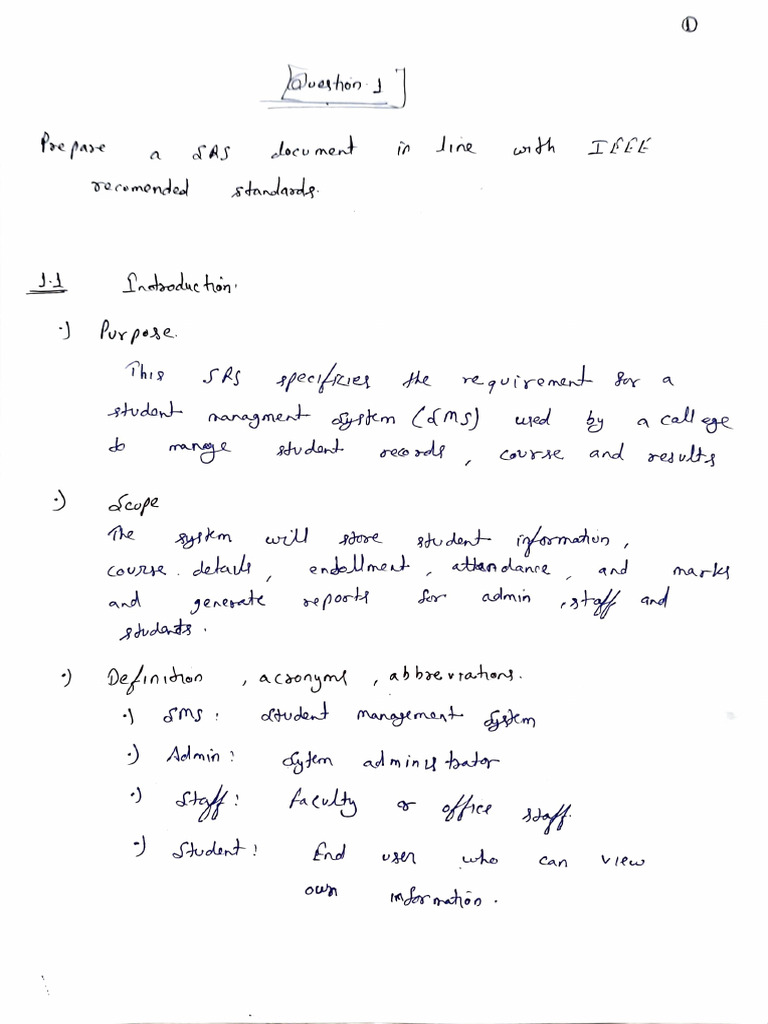 ①
Question 1
Prepare a SRS document in line with IEEE
recomended standards.
1.1 Introduction.
•) Purpose.
This SRS specifizies the requirement for a
student managment System (SMS) used by a callege
to mange student records, course and results
•) Scope
The system will store student information,
course. details, enrollment, attendance, and marks
and generate reports for admin, staff and
students.
•) Definition, acronyms, abbreviations.
•) SMS: Student management System
•) Admin: Sytem administrator
•) Staff: faculty or office staff.
•) Student: End user who can view
own information.